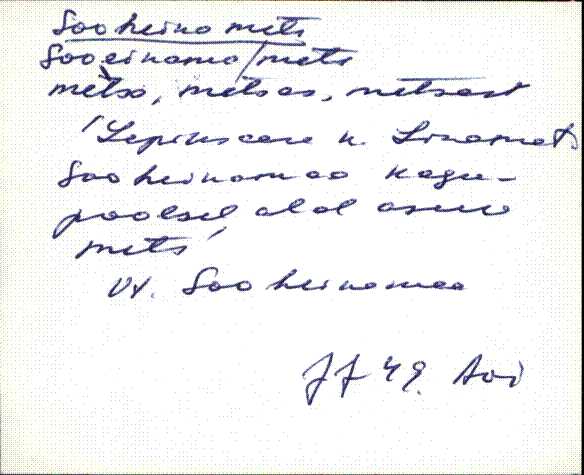 Sooheina mets
Sooeinama/mets
mètsà, metsas, metsast
'Lepiksaare k. Linamet
Sooheinamaa kagu-
poolsel alal asuv
mets'
Vt. Sooheinamaa
JJ 49. Avi